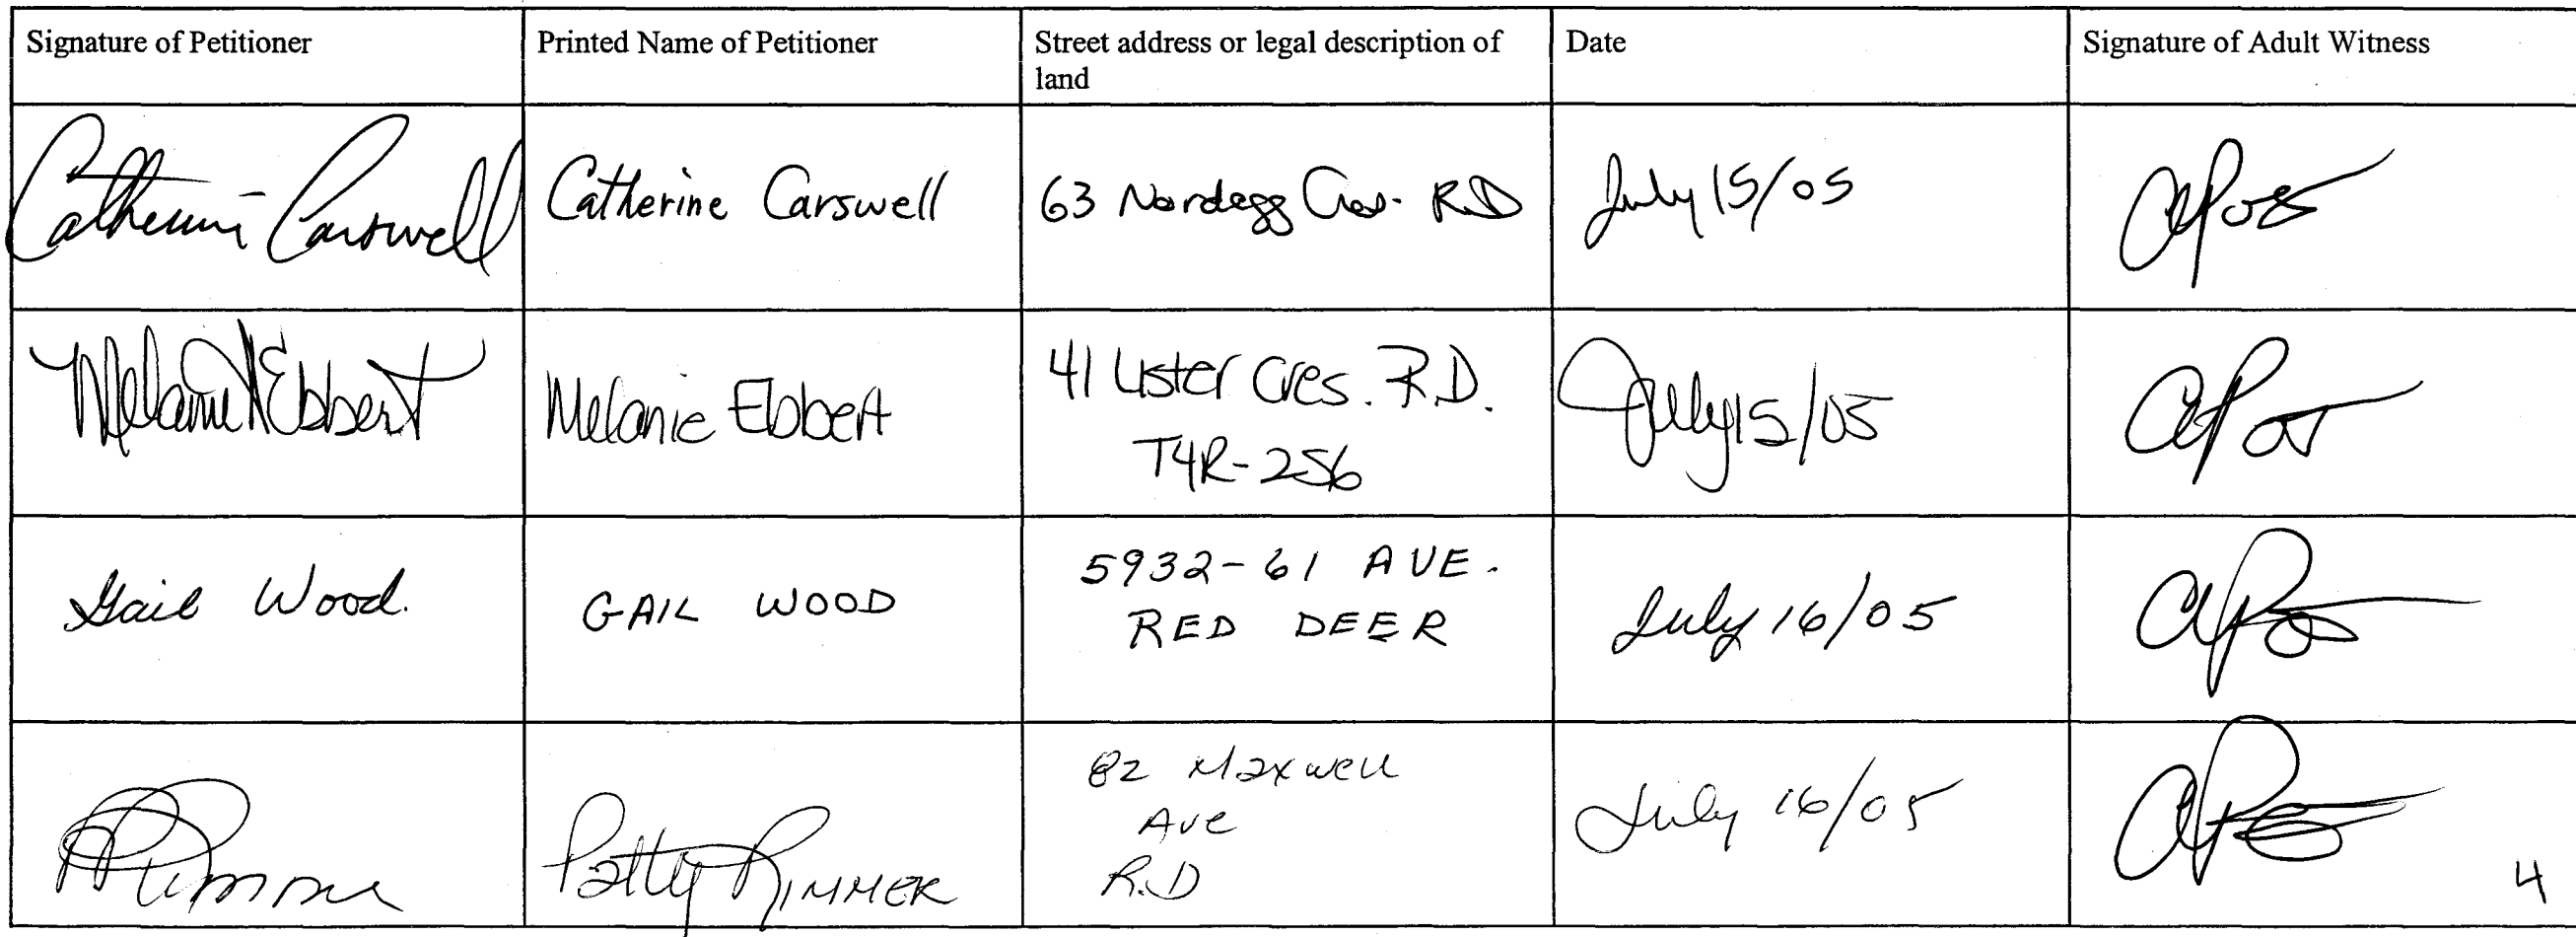 Signature of Petitioner
Printed Name of Petitioner
Street address or legal description of
land
Date
Signature of Adult Witness
Catherine Carswell
Catherine Carswell
63 Nordegg Cres. RD
July 15/05
Melanie Ebbert
Melanie Ebbert
41 Lister Cres. R.D.
T4R-2S6
July 15/05
Gail Wood.
GAIL WOOD
5932-61 AVE.
RED DEER
July 16/05
Patty RIMMER
82 Maxwell
Ave
R.D
July 16/05
4